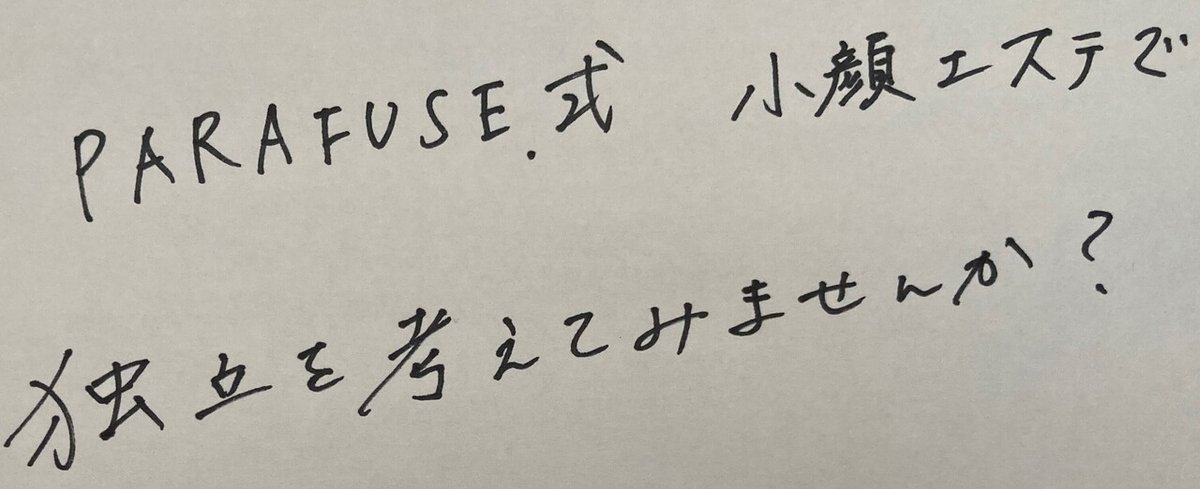 PARAFUSE.式 小顔エステで
独立を考えてみませんか?